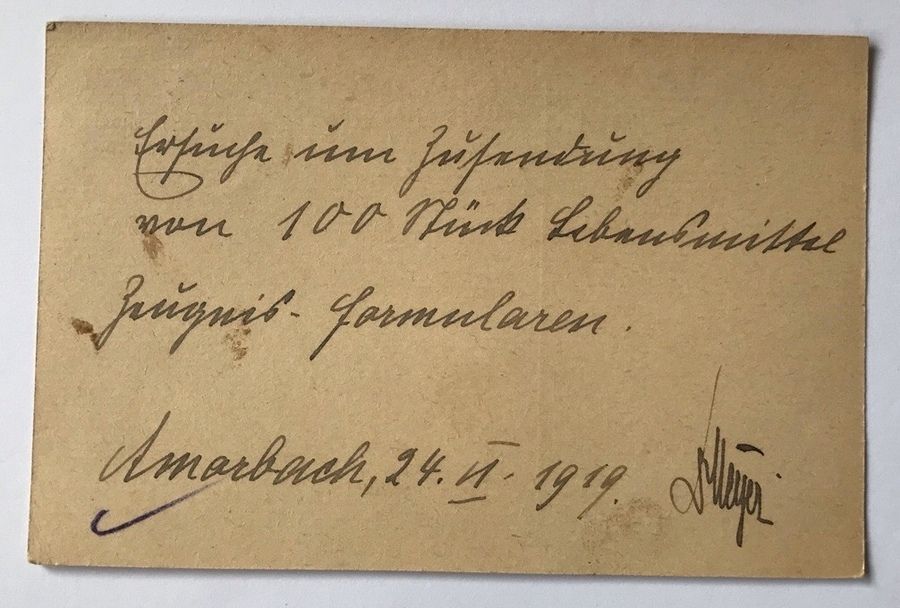 Ersuche um Zusendung
von 100 Stück Lebensmittel
Zeugnis- formularen.
Amorbach, 24. II. 1919.
Meyer